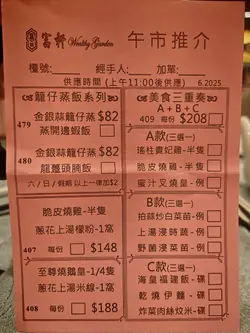 富軒
Wealthy Garden
午市推介
檯號:____ 經手人:____ 加單:____
供應時間 (上午11:00後供應) 6.2025
籠仔蒸飯系列
479 金銀蒜籠仔 $82
蒸開邊蝦飯
480 金銀蒜籠仔 $82
龍躉頭腩飯
六/日/假期 以上一律加$2
脆皮燒雞-半隻
蔥花上湯檬粉-1窩
407 每份 $148
至尊燒鵝皇-1/4隻
蔥花上湯米線-1窩
408 每份 $188
美食三重奏
A+B+C
409 每份 $208
A款(三選一)
瑤柱貴妃雞-半隻
脆皮燒雞-半隻
蜜汁叉燒皇-例
B款(三選一)
拍蒜炒白菜苗-例
上湯浸時蔬-例
野菌浸菜苗-例
C款(三選一)
海皇福建飯-碟
乾燒伊麵-碟
炸菜肉絲炆米-碟